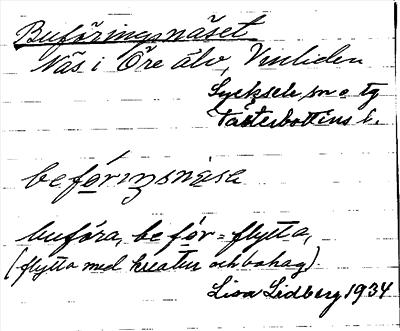 Buföringsnäset
Näs i Öre älv, Vinliden
Lycksele sn o tg
Västerbottens l.
beförıŋsnäsə
buföra, beför = flytta,
(flytta med kreatur och bohag)
Lisa Lidberg 1934